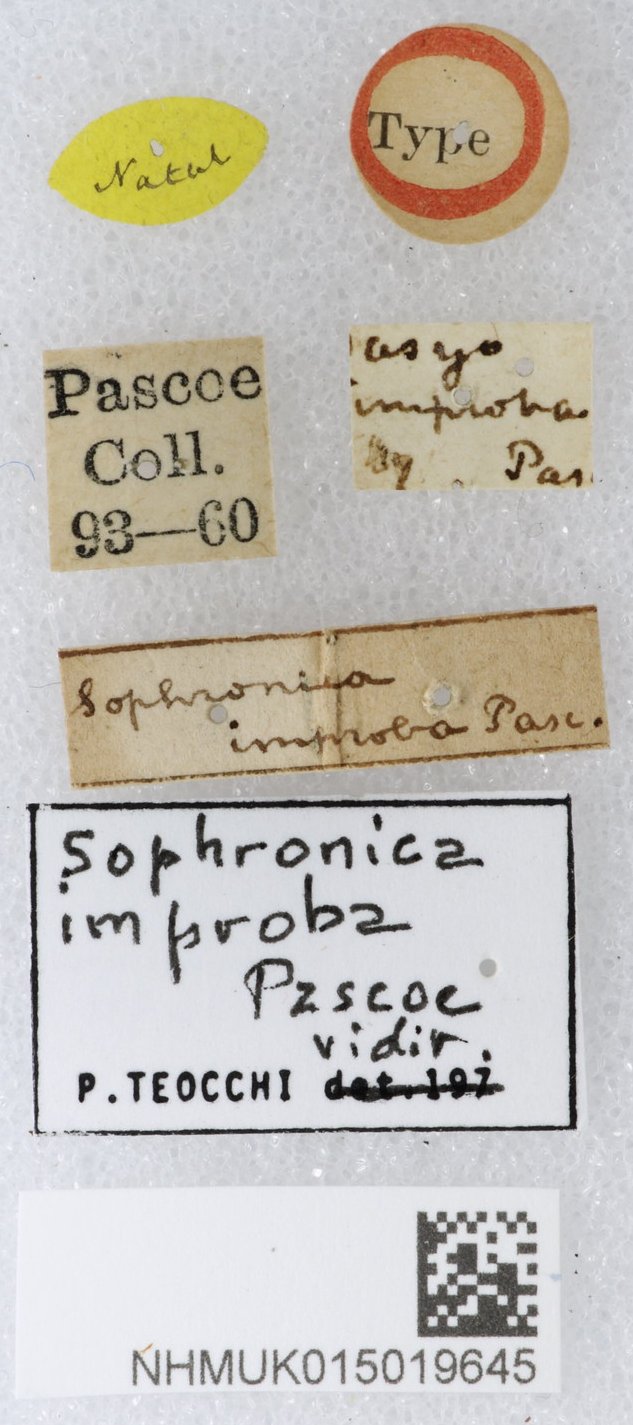 Natal
Type
Pascoe
Coll.
93—60
asyo
improba
Pas.
Sophronica
improba Pasc.
Sophronica
improba
Pascoe
vidit.
P. TEOCCHI det. 197
NHMUK015019645